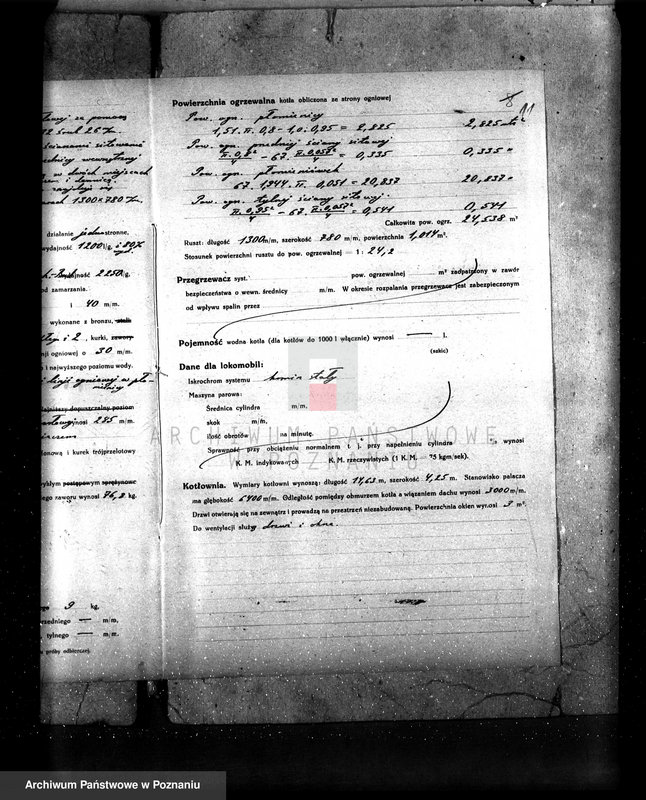 8
11
Powierzchnia ogrzewalna kotła obliczona ze strony ogniowej
Pow. ogn. płomienicy
1,51. π. 0,8 - 1,0 . 0,95 = 2,825 2,825 m²
Pow. ogn. przedniej ściany sitowej
π. 0,8² / 4 - 67. π. 0,057² / 4 = 0,335 0,335 "
Pow. ogn. płomieniówek
67. 1,944. π. 0,051 = 20,837 20,837 "
Pow. ogn. tylnej ściany sitowej
π. 0,95² / 4 - 67. π. 0,057² / 4 = 0,541 0,541
Całkowita pow. ogrz. 24,538 m²
Ruszt: długość 1300 m/m, szerokość 780 m/m, powierzchnia 1,014 m².
Stosunek powierzchni rusztu do pow. ogrzewalnej = 1 : 24,2
Przegrzewacz syst. pow. ogrzewalnej m² zadpatrzony w zawór
bezpieczeństwa o wewn. średnicy m/m. W okresie rozpalania przegrzewacz jest zabezpieczonym
od wpływu spalin przez
Pojemność wodna kotła (dla kotłów do 1000 l włącznie) wynosi — l.
Dane dla lokomobil:
Iskrochrom systemu komin stały
Maszyna parowa:
Średnica cylindra m/m.
skok m/m.
ilość obrotów na minutę.
Sprawność przy obciążeniu normalnem t j. przy napełnieniu cylindra %, wynosi
K. M. indykowanych K. M. rzeczywistych (1 K. M. 75 kgm/sek).
Kotłownia. Wymiary kotłowni wynoszą: długość 14,63 m, szerokość 4,25 m. Stanowisko palacza
ma głębokość 6400 m/m. Odległość pomiędzy obmurzem kotła a wiązaniem dachu wynosi 3000 m/m.
Drzwi otwierają się na zewnątrz i prowadzą na przestrzeń niezabudowaną. Powierzchnia okien wynosi 3 m².
Do wentylacji służą drzwi i okna.
za pomocą
ścianami sitowemi
wewnętrznej
w dwóch miejscach
1300 x 780 m/m.
działanie jednostronne.
wydajność 1200 l/g.
2250 l/g.
od zamarzania.
i 40 m/m.
wykonane z bronzu,
i 2, kurki,
ogniowej o 30 m/m.
i najwyższego poziomu wody.
linji ogniowej w
najniższy dopuszczalny poziom
wynosi 285 m/m.
i kurek trójprzelotowy
zaworu wynosi 76,2 kg.
9 kg.
przedniego — m/m.
tylnego — m/m.
próby odbiorczej.
ARCHIWUM PAŃSTWOWE
W POZNANIU
Archiwum Państwowe w Poznaniu